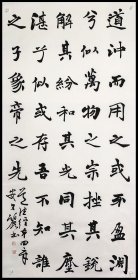 道沖而用之或不盈淵
兮似萬物之宗挫其銳
解其紛和其光同其塵
湛兮似或存吾不知誰
之子象帝之先
道德經第四章